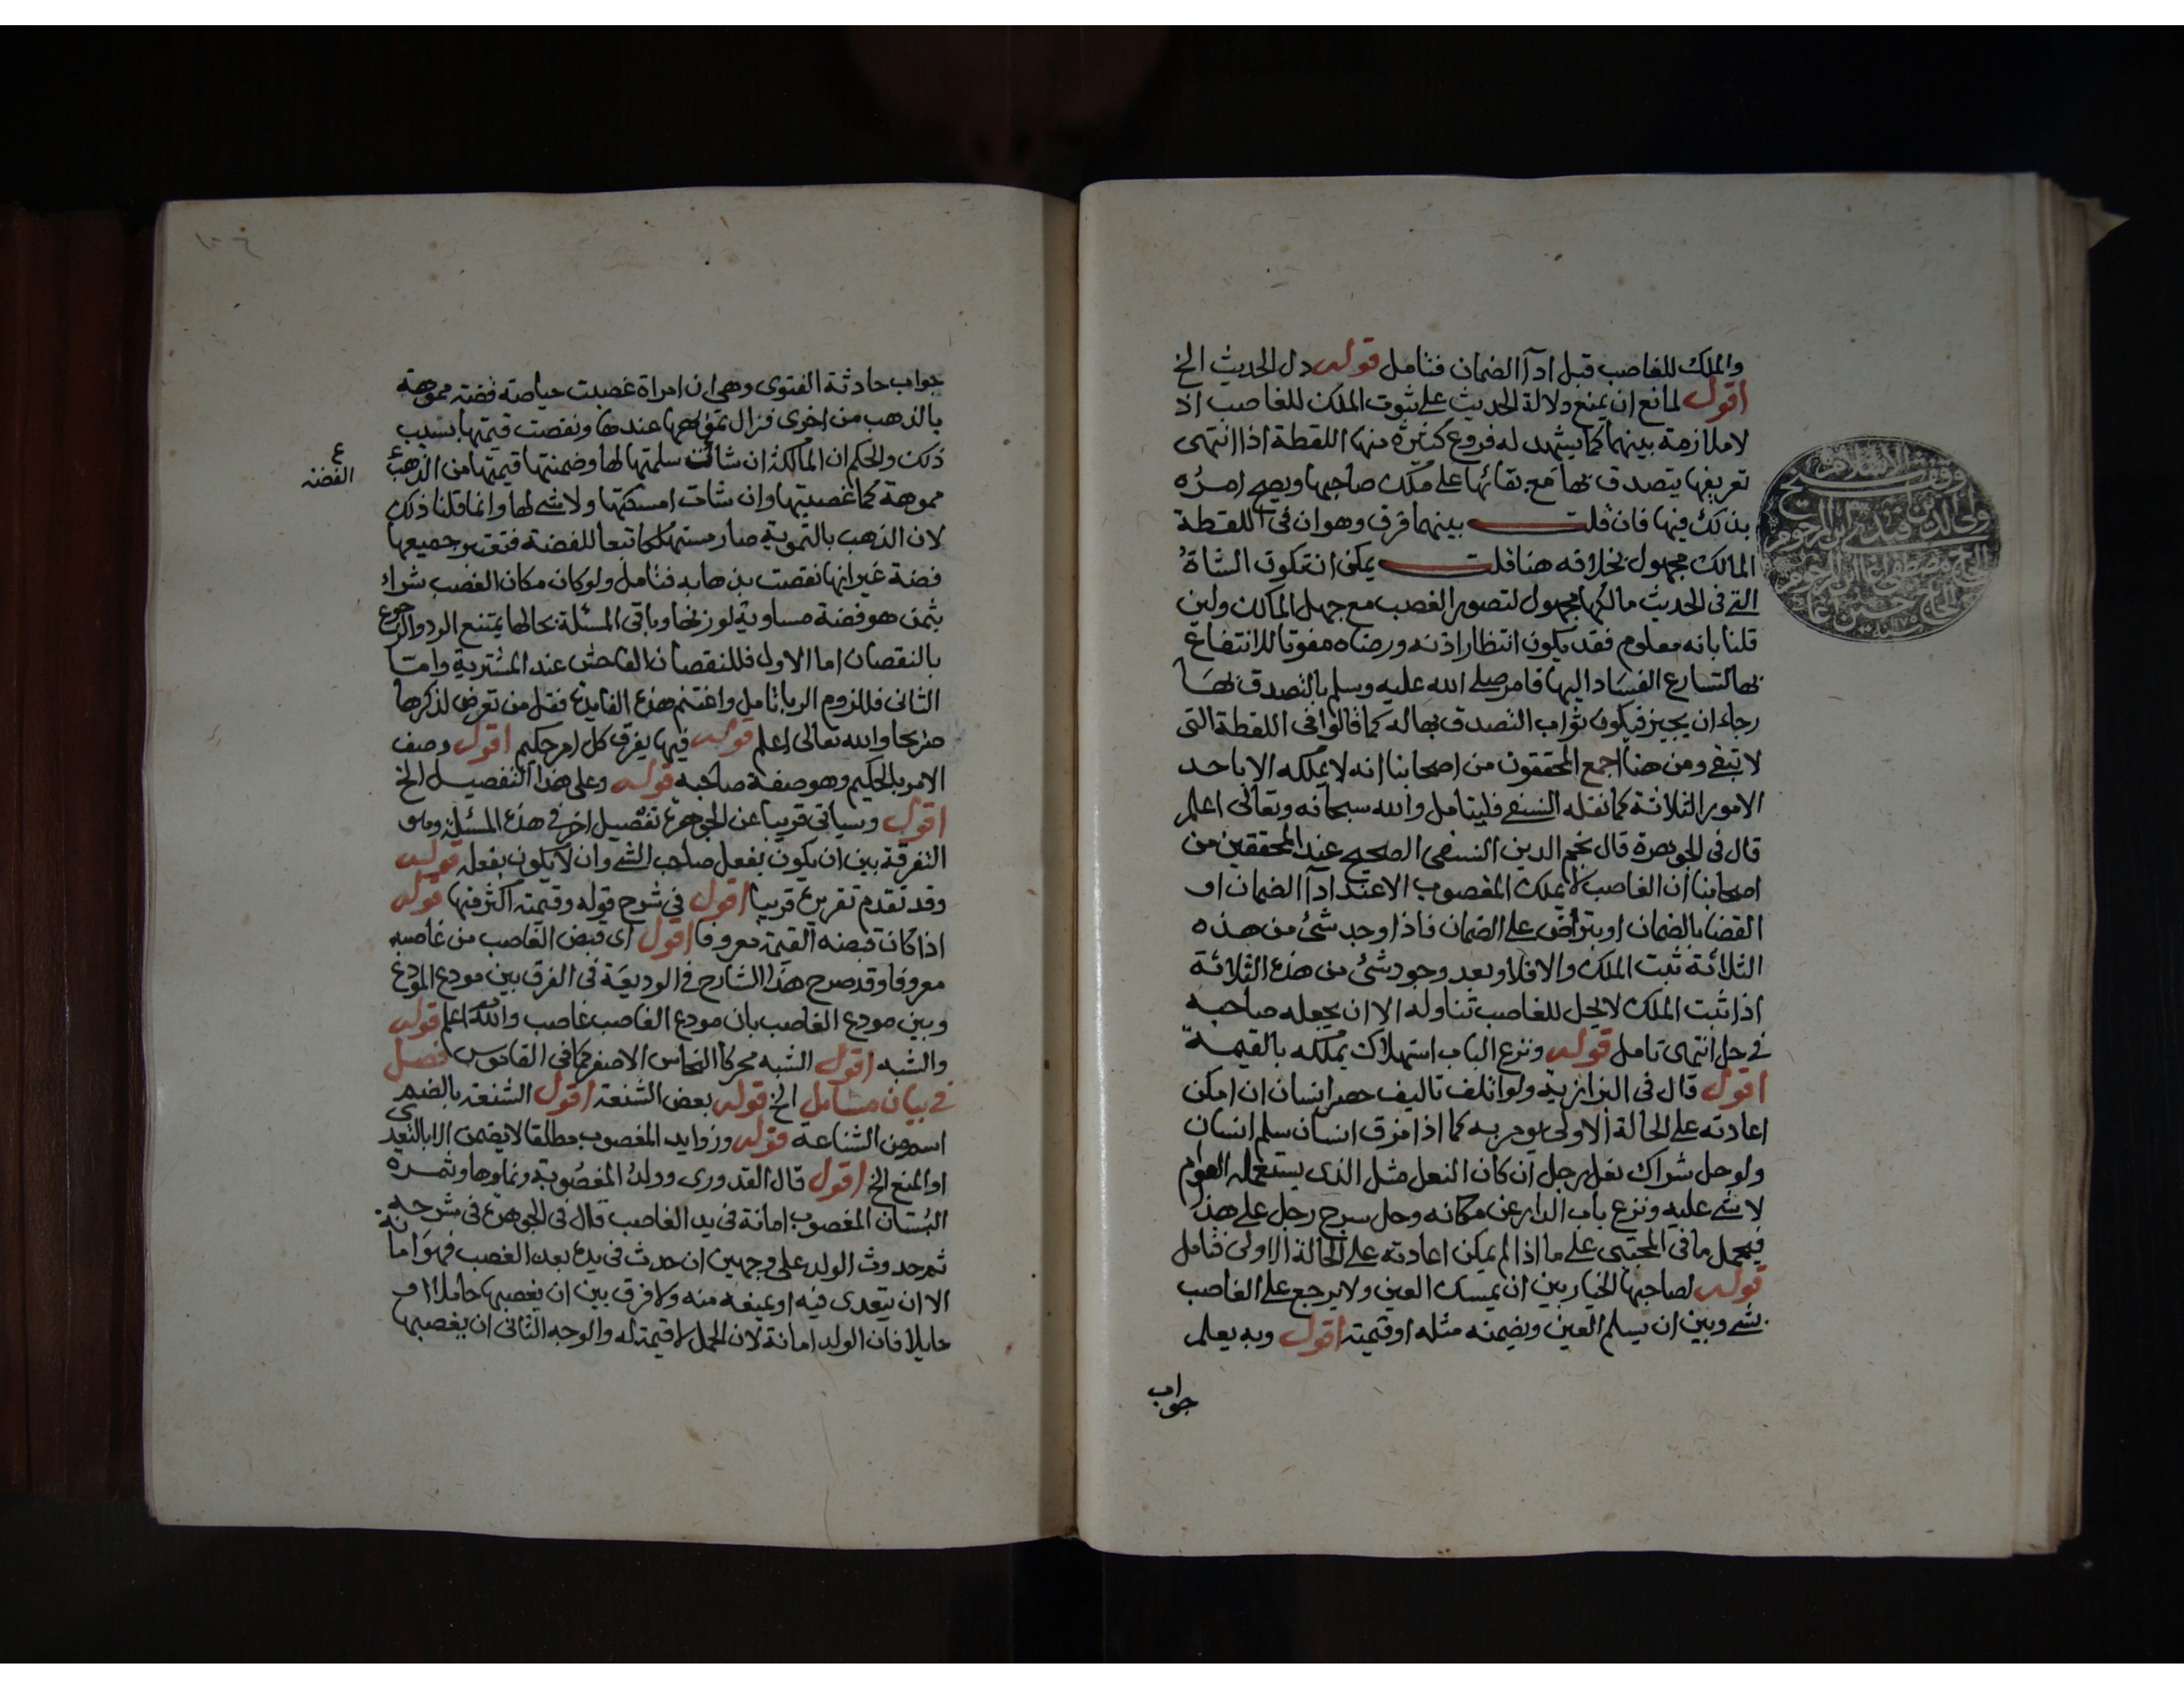 والملك للغاصب قبل ادآ الضمان فتامل قوله دل الحديث الخ
اقول لمانع ان يمنع دلالة الحديث على ثبوت الملك للغاصب اذ
لا ملازمة بينهما كما يشهد له فروع كثيرة منها اللقطة اذا انتهى
تعريفها يتصدق بها مع بقائها على ملك صاحبها ويصح امره
بذلك فيها فان قلت بينهما فرق وهو ان في اللقطة
المالك مجهول بخلافه هنا قلت يمكن ان تكون الشاة
التي في الحديث مالكها مجهول لتصور الغصب مع جهل المالك ولين
قلنا بانه معلوم فقد يكون انتظار اذنه ورضاه مفوتا للانتفاع
بها لتسارع الفساد اليها فامر صلى الله عليه وسلم بالتصدق بها
رجاء ان يجيز فيكون ثواب التصدق بها له كما قالوا في اللقطة التي
لا تبقى ومن هنا اجمع المحققون من اصحابنا انه لا يملكه الا باحد
الامور الثلاثة كما نقله النسفي فليتامل والله سبحانه وتعالى اعلم
قال في الجوهرة قال نجم الدين النسفي الصحيح عند المحققين من
اصحابنا ان الغاصب لا يملك المغصوب الا عند ادآ الضمان او
القضا بالضمان او بتراض على الضمان فاذا وجد شئ من هذه
الثلاثة ثبت الملك والا فلا وبعد وجود شئ من هذه الثلاثة
اذا ثبت الملك لا يحل للغاصب تناوله الا ان يجعله صاحبه
في حل انتهى تامل قوله ونزع الباب استهلاك يملكه بالقيمة
اقول قال في البزازية ولو اتلف تاليف حصير انسان ان امكن
اعادته على الحالة الاولى يومر به كما اذا فرق انسان سلم انسان
ولو حل شراك نعل رجل ان كان النعل مثل الذى يستعمله العوام
لا شى عليه ونزع باب الدار عن مكانه وحل سرج رجل على هذا
فيحمل ما في المجتبى على ما اذا لم يمكن اعادته على الحالة الاولى فتامل
قوله لصاحبها الخيار بين ان يمسك العين ولا يرجع على الغاصب
بشى وبين ان يسلم العين ويضمنه مثله او قيمته اقول وبه يعلم
جواب
جواب حادثة الفتوى وهي ان امراة غصبت حياصة فضة مموهة
بالذهب من اخرى فزال تمويهها عندها ونقصت قيمتها بسبب
ذلك والحكم ان المالكة ان شائت سلمتها لها وضمنتها قيمتها من الذهب
الفضة
مموهة كما غصبتها وان شات امسكتها ولا شى لها وانما قلنا ذلك
لان الذهب بالتمويه صار مستهلكا تبعا للفضة فتعتبر جميعها
فضة غير انها نقصت بذهابه فتامل ولو كان مكان الغصب شراء
بثمن هو فضة مساوية لوزنها وباقي المسئلة بحالها يمتنع الرد والرجوع
بالنقصان اما الاول فللنقصان الفاحش عند المشترية وامتا
الثاني فللزوم الربا تامل واغتنم هذه الفايدة فقل من تعرض لذكرها
صريحا والله تعالى اعلم قوله فيها يفرق كل امر حكيم اقول وصف
الامر بالحكيم وهو صفة صاحبه قوله وعلى هذا التفصيل الخ
اقول وسياتي قريبا عن الجوهرة تفصيل اخر في هذه المسئلة وهو
التفرقة بين ان يكون بفعل صاحب الشى وان لا يكون بفعله قوله
وقد تقدم تقريره قريبا اقول في شرح قوله وقيمته اكثر فيها قوله
اذا كانت قبضه القيمة معروفا اقول اى قبض الغاصب من غاصبه
معروفا وقد صرح هذا الشارح في الوديعة في الفرق بين مودع المودع
وبين مودع الغاصب بان مودع الغاصب غاصب والله اعلم قوله
والشبه اقول الشبه محركا النحاس الاصفر كما في القاموس فصل
في بيان مسايل الخ قوله بعض الشنعة اقول الشنعة بالضم
اسم من الشناعة قوله وزوايد المغصوب مطلقا لا يضمن الا بالتعدى
او المنع الخ اقول قال القدورى وولد المغصوبة ونماوها وثمره
البستان المغصوب امانة في يد الغاصب قال في الجوهرة في شرحه
ثم حدوث الولد على وجهين ان حدث في يده بعد الغصب فهو امانة
الا ان يتعدى فيه او يمنعه منه ولا فرق بين ان يغصبها حاملا او
حايلا فان الولد امانة لان الحمل لا قيمة له والوجه الثاني ان يغصبها